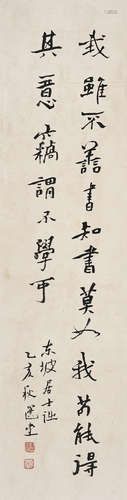 我雖不善書知書莫如我苟能得
其意常謂不學可
東坡居士詩
乙亥秋選堂